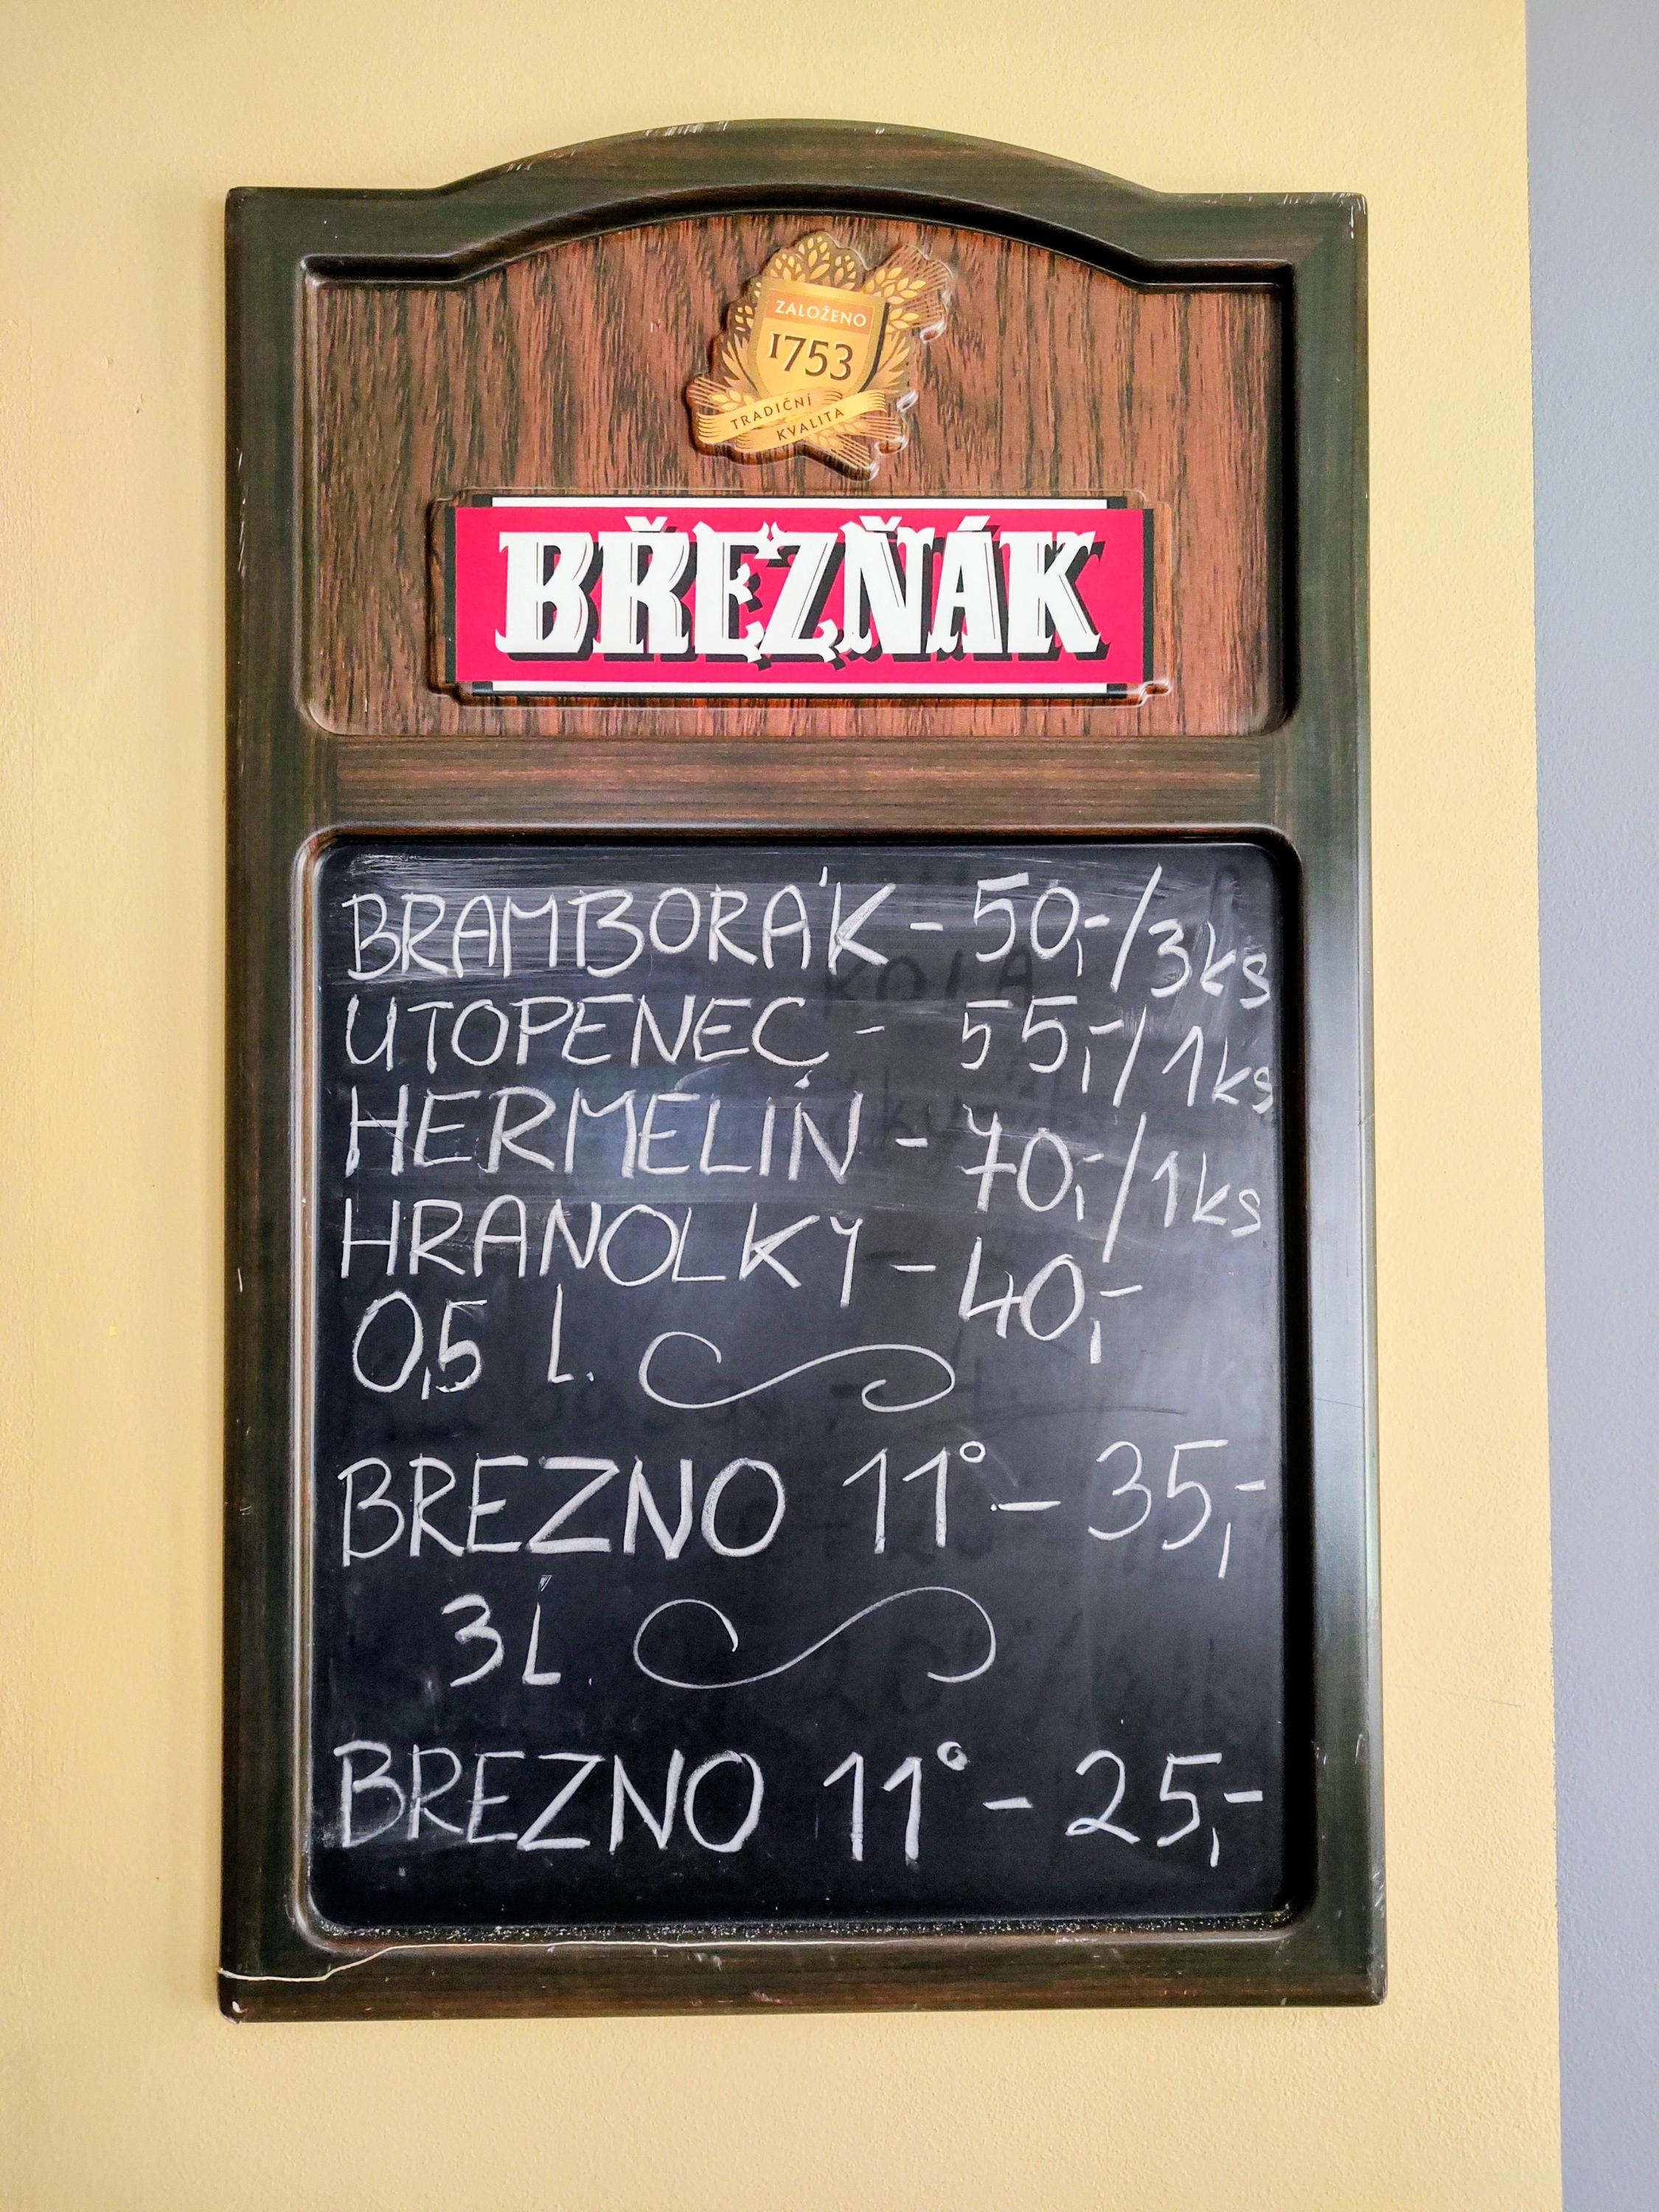 ZALOŽENO
1753
TRADIČNÍ
KVALITA
BŘEZŇÁK
BRAMBORÁK - 50,-/3ks
UTOPENEC - 55,-/1ks
HERMELÍN - 70,-/1ks
HRANOLKY - 40,-
0,5 L.
BREZNO 11° - 35,-
3 L.
BREZNO 11° - 25,-